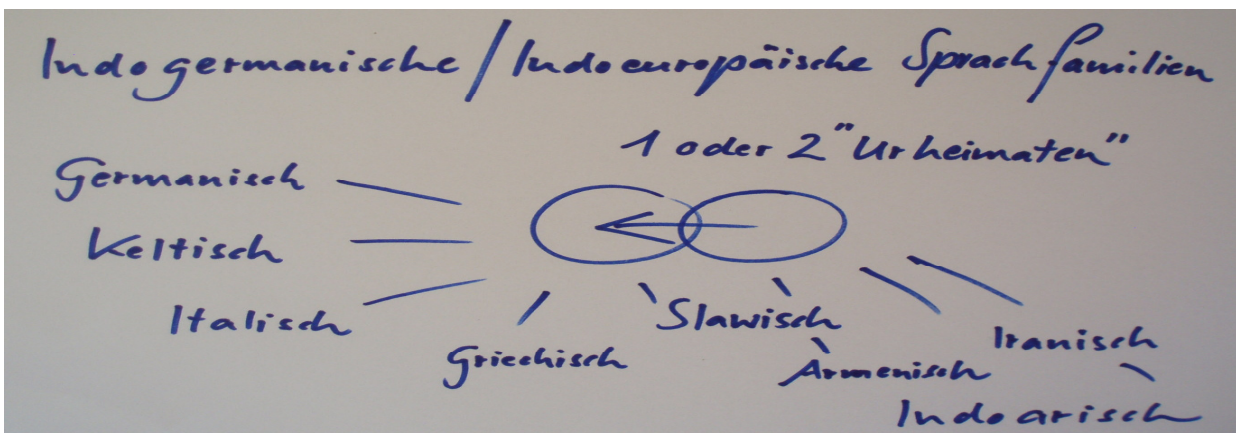 Indogermanische/Indoeuropäische Sprachfamilien
1 oder 2 "Urheimaten"
Germanisch
Keltisch
Italisch
Griechisch
Slawisch
Armenisch
Iranisch
Indoarisch